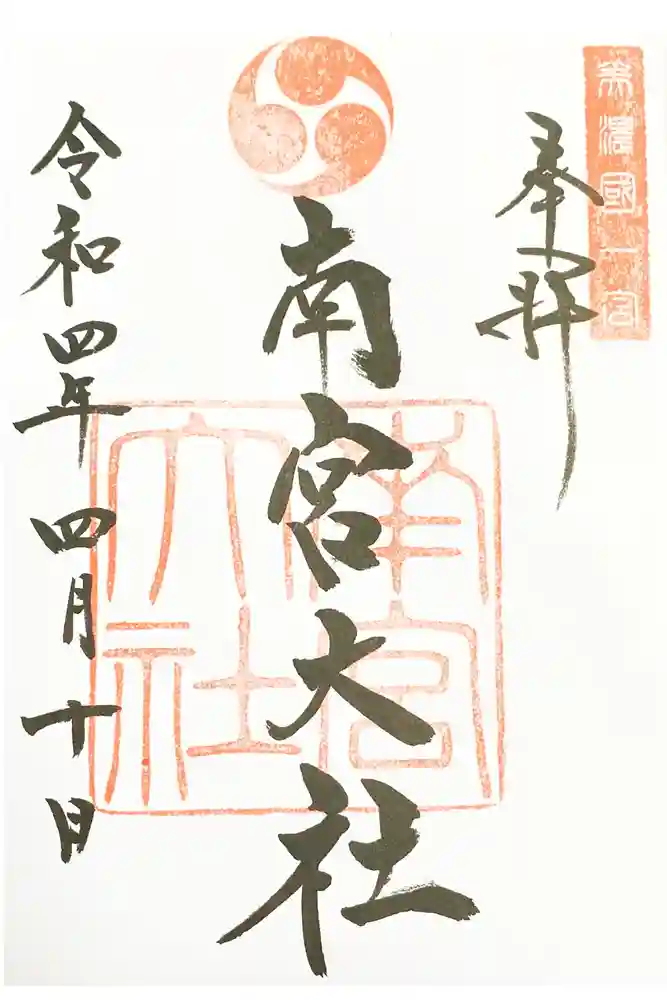 美濃國一宮
奉拝
南宮大社
南宮大社
令和四年四月十日